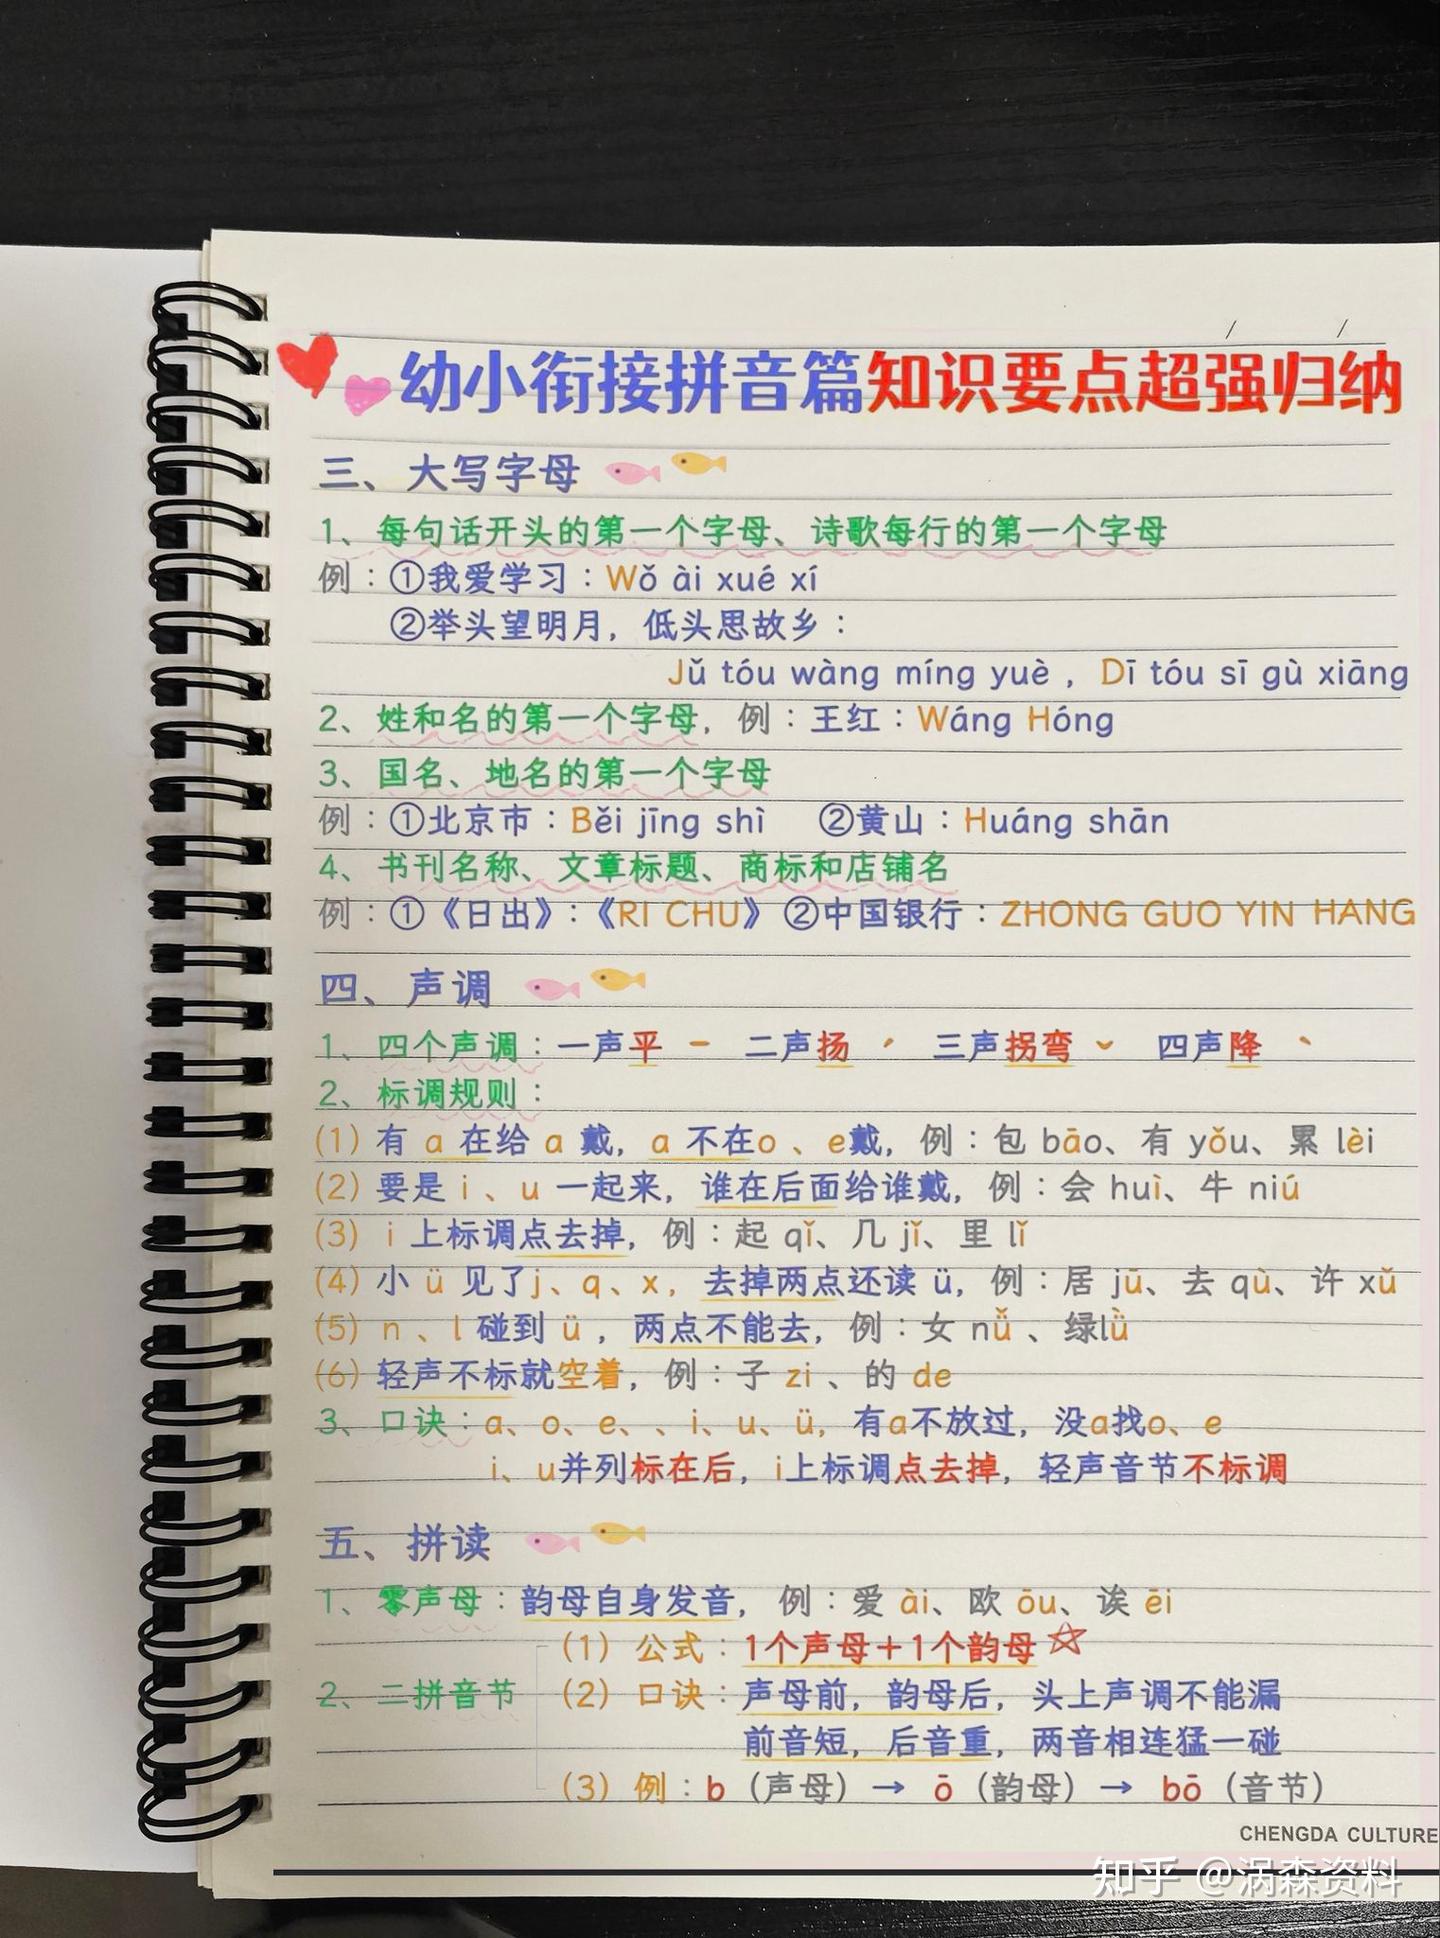 幼小衔接拼音篇知识要点超强归纳
三、大写字母
1、每句话开头的第一个字母、诗歌每行的第一个字母
例：①我爱学习：Wǒ ài xué xí
②举头望明月，低头思故乡：
Jǔ tóu wàng míng yuè，Dī tóu sī gù xiāng
2、姓和名的第一个字母，例：王红：Wáng Hóng
3、国名、地名的第一个字母
例：①北京市：Běi jīng shì ②黄山：Huáng shān
4、书刊名称、文章标题、商标和店铺名
例：①《日出》：《RI CHU》②中国银行：ZHONG GUO YIN HANG
四、声调
1、四个声调：一声平 ˉ 二声扬 ˊ 三声拐弯 ˇ 四声降 ˋ
2、标调规则：
(1) 有 a 在给 a 戴，a 不在o、e戴，例：包 bāo、有 yǒu、累 lèi
(2) 要是 i、u 一起来，谁在后面给谁戴，例：会 huì、牛 niú
(3) i 上标调点去掉，例：起 qǐ、几 jǐ、里 lǐ
(4) 小 ü 见了j、q、x，去掉两点还读 ü，例：居 jū、去 qù、许 xǔ
(5) n、l 碰到 ü，两点不能去，例：女 nǚ、绿lǜ
(6) 轻声不标就空着，例：子 zi、的 de
3、口诀：a、o、e、、i、u、ü，有a不放过，没a找o、e
i、u并列标在后，i上标调点去掉，轻声音节不标调
五、拼读
1、零声母：韵母自身发音，例：爱 ài、欧 ōu、诶 ēi
(1) 公式：1个声母＋1个韵母☆
2、二拼音节 (2) 口诀：声母前，韵母后，头上声调不能漏
前音短，后音重，两音相连猛一碰
(3) 例：b（声母）→ ō（韵母）→ bō（音节）
CHENGDA CULTURE
知乎 @涡森资料